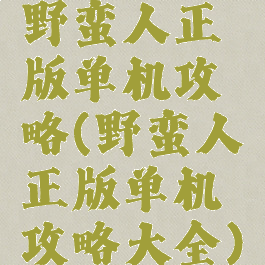 野蛮人正
版单机攻
略(野蛮人
正版单机
攻略大全)